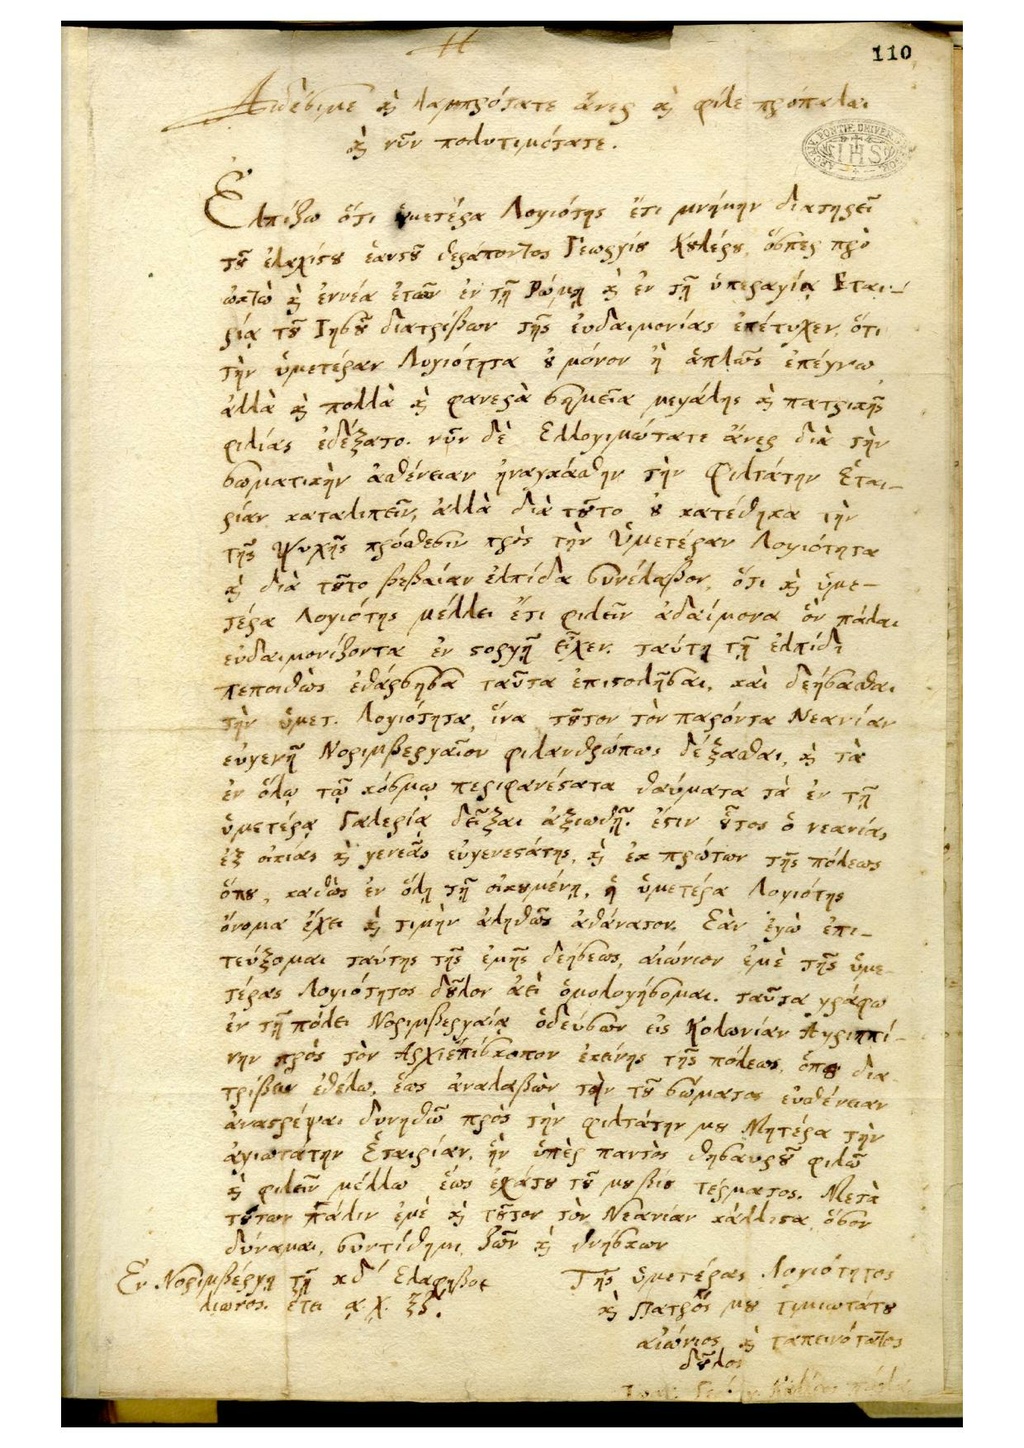 110
Αἰδέσιμε καὶ λαμπρότατε ἄνερ καὶ φίλε πρόπαλαι
καὶ νῦν πολυτιμότατε.
Ἐλπίζω ὅτι ὑμετέρα Λογιότης ἔτι μνήμην διατηρεῖ
τοῦ ἐλαχίστου ἑαυτοῦ θεράποντος Γεωργίου, ὅσπερ πρὸ
ὀκτὼ καὶ ἐννέα ἐτῶν ἐν τῇ Ῥώμῃ καὶ ἐν τῇ ὑπεραγίᾳ Εται-
ρίᾳ τοῦ Ιησοῦ διατρίβων τῆς εὐδαιμονίας ἐπέτυχεν, ὅτι
τὴν ὑμετέραν Λογιότητα οὐ μόνον ἢ ἁπλῶς ἐπέγνω
ἀλλὰ καὶ πολλὰ καὶ φανερὰ σημεῖα μεγάλης καὶ πατρικῆς
φιλίας ἐδέξατο. νῦν δὲ Ελλογιμώτατε ἄνερ διὰ τὴν
σωματικὴν ἀσθένειαν ἠναγκάσθην τὴν Φιλτάτην Ἑται-
ρίαν καταλιπεῖν, ἀλλὰ διὰ τοῦτο οὐ κατέθηκα τὴν
τῆς Ψυχῆς πρόθεσιν πρὸς τὴν Ὑμετέραν Λογιότητα
καὶ διὰ τοῦτο βεβαίαν ἐλπίδα συνέλαβον, ὅτι καὶ ὑμε-
τέρα Λογιότης μέλλει ἔτι φιλεῖν ἀδαίμονα ὃν πάλαι
εὐδαιμονίζοντα ἐν στοργῇ εἶχεν. ταύτῃ τῇ ἐλπίδι
πεποιθὼς ἐθάρσησα ταῦτα ἐπιστολῆσαι, καὶ δεήσασθαι
τὴν ὑμετ. Λογιότητα, ἵνα τοῦτον τὸν παρόντα Νεανίαν
εὐγενῆ Νοριμβεργαῖον φιλανθρώπως δέξασθαι, καὶ τὰ
ἐν ὅλῳ τῷ κόσμῳ περιφανέστατα θαύματα τὰ ἐν τῇ
ὑμετέρᾳ Γαλερίᾳ δεῖξαι ἀξιωθῇ. ἔστιν οὗτος ὁ νεανίας
ἐξ οἰκίας καὶ γενεᾶς εὐγενεστάτης, καὶ ἐκ πρώτων τῆς πόλεως
ὅπου, καθὼς ἐν ὅλῃ τῇ οἰκουμένῃ, ἡ ὑμετέρα Λογιότης
ὄνομα ἔχει καὶ τιμὴν ἀληθῶς ἀθάνατον. Εὰν ἐγὼ ἐπι-
τεύξομαι ταύτης τῆς ἐμῆς δεήσεως, αἰώνιον ἐμὲ τῆς ὑμε-
τέρας Λογιότητος δοῦλον ἀεὶ ὁμολογήσομαι. ταῦτα γράφω
ἐν τῇ πόλει Νοριμβεργαίᾳ ὁδεύσων εἰς Κολωνίαν Αγριππί-
νην πρὸς τὸν Αρχιεπίσκοπον ἐκείνης τῆς πόλεως, ὅπου δια-
τρίβειν ἐθέλω, ἕως ἀναλαβὼν τὴν τοῦ σώματος εὐσθένειαν
ἀναστρέψαι δυνηθῶ πρὸς τὴν φιλτάτην μου Μητέρα τὴν
ἁγιωτάτην Ἑταιρίαν, ἣν ὑπὲρ παντὸς θησαυροῦ φιλῶ
καὶ φιλεῖν μέλλω ἕως ἐσχάτου τοῦ μου βίου τέρματος. Μετὰ
τούτων πάλιν ἐμὲ καὶ τοῦτον τὸν Νεανίαν κάλλιστα, ὅσον
δύναμαι, συντίθημι ζῶν καὶ θνήσκων
Ἐν Νοριμβέργῃ τῇ κδ΄ Ελαφηβο-
λιῶνος. ἔτει α. χ. ξδ΄.
Τῆς ὑμετέρας Λογιότητος
καὶ Πατρός μου τιμιωτάτου
αἰώνιος καὶ ταπεινότατος
δοῦλος